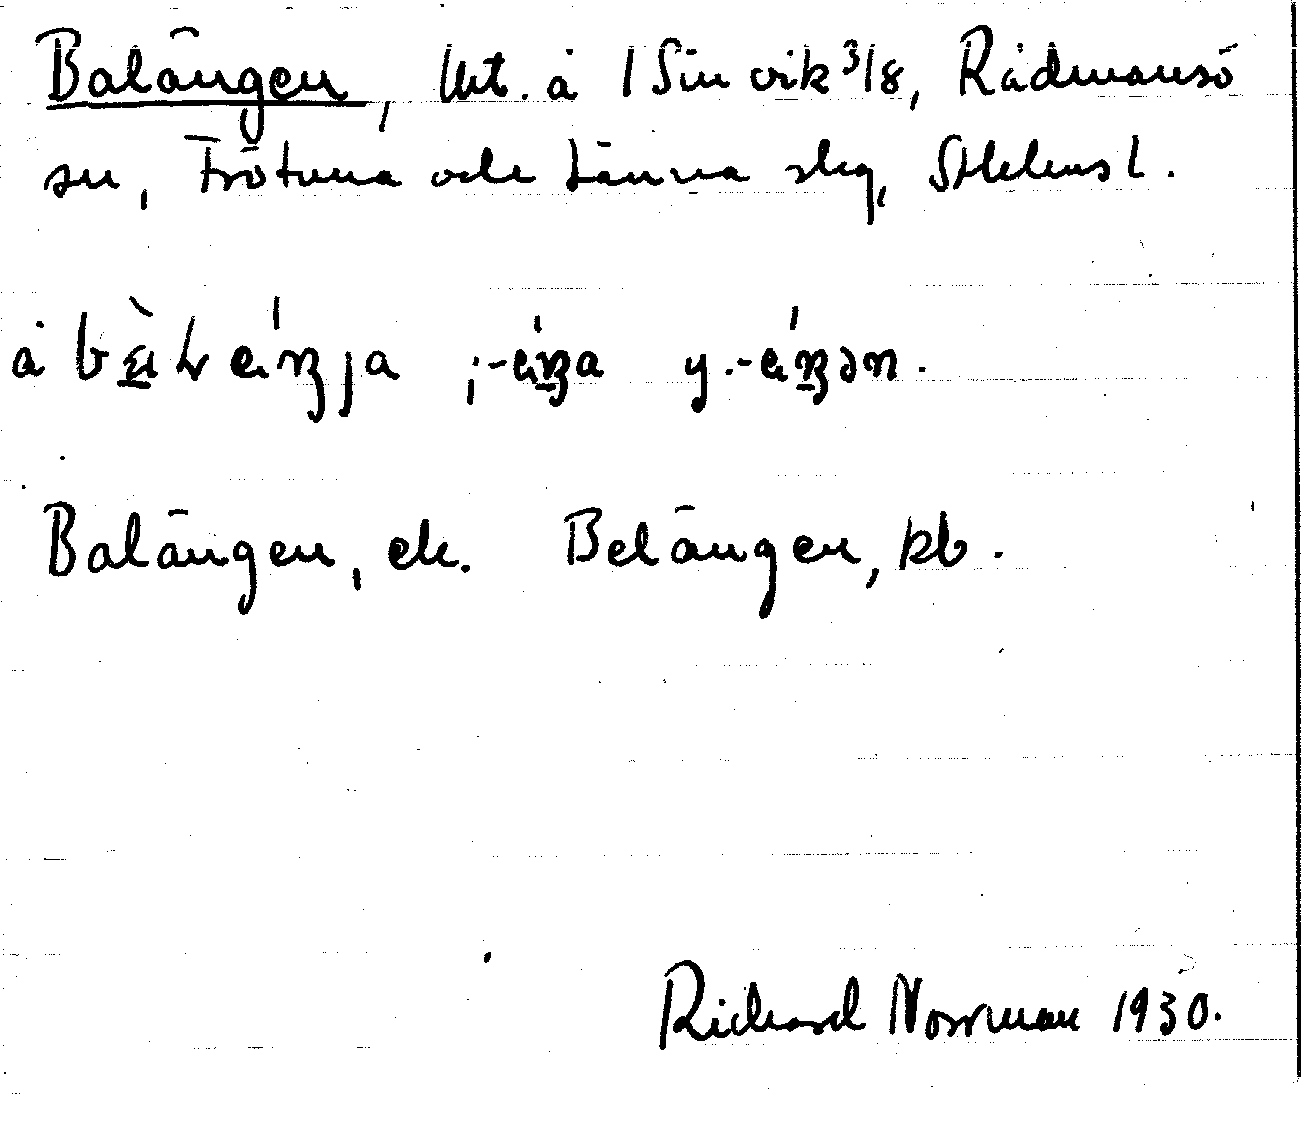 Balängen, Utt. å 1 Sim vik 3/8, Rådmansö
sn, Frötuna och Länna skg, Sthlms l.
Balängen, ek. Belängen, kb.
Richard Norrman 1930.